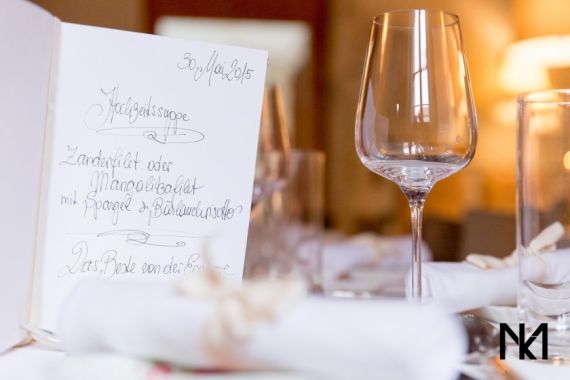 30. Mai 2015
Hochzeitssuppe
Zanderfilet oder
Mangalitzafilet
mit Spargel & Bärlauchrisotto
Das Beste von der